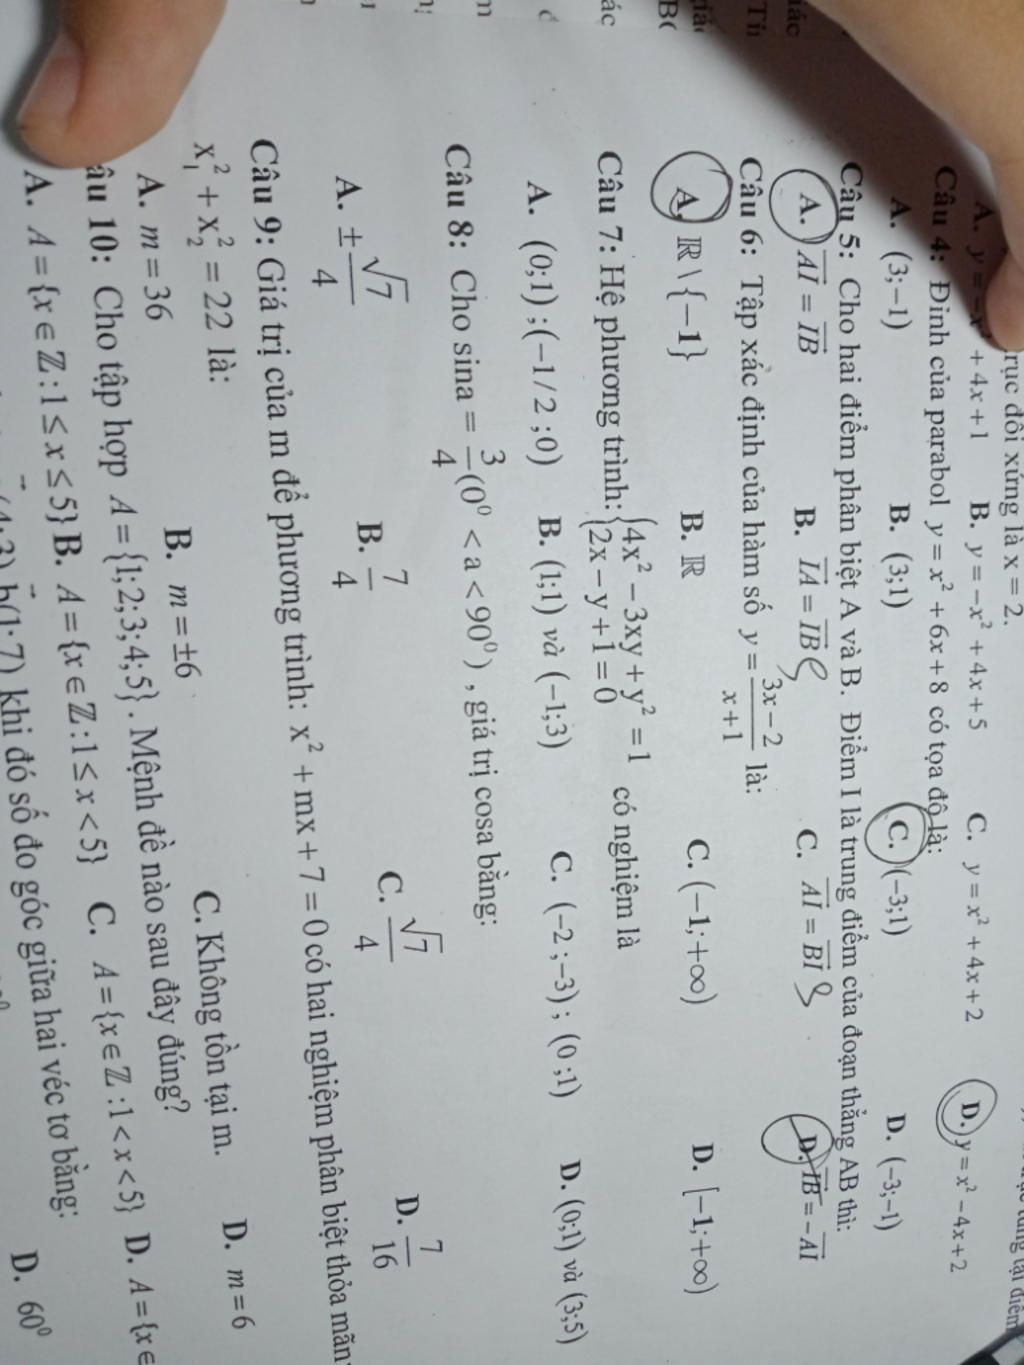 trục đối xứng là x = 2.
A. y = -x² + 4x + 1 B. y = -x² + 4x + 5 C. y = x² + 4x + 2 D. y = x² - 4x + 2
Câu 4: Đỉnh của parabol y = x² + 6x + 8 có tọa độ là:
A. (3;-1) B. (3;1) C. (-3;1) D. (-3;-1)
Câu 5: Cho hai điểm phân biệt A và B. Điểm I là trung điểm của đoạn thẳng AB thì:
A. \overline{AI} = \overline{IB} B. \overline{IA} = \overline{IB} C. \overline{AI} = \overline{BI} D. \overline{IB} = -\overline{AI}
Câu 6: Tập xác định của hàm số y = \frac{3x-2}{x+1} là:
A. ℝ \ {-1} B. ℝ C. (-1;+∞) D. [-1;+∞)
Câu 7: Hệ phương trình: {4x² - 3xy + y² = 1
{2x - y + 1 = 0 có nghiệm là
A. (0;1) ;(-1/2 ;0) B. (1;1) và (-1;3) C. (-2 ;-3) ; (0 ;1) D. (0;1) và (3;5)
Câu 8: Cho sina = \frac{3}{4}(0⁰ < a < 90⁰) , giá trị cosa bằng:
A. ±\frac{√7}{4} B. \frac{7}{4} C. \frac{√7}{4} D. \frac{7}{16}
Câu 9: Giá trị của m để phương trình: x² + mx + 7 = 0 có hai nghiệm phân biệt thỏa mãn:
x₁² + x₂² = 22 là:
A. m = 36 B. m = ±6 C. Không tồn tại m. D. m = 6
âu 10: Cho tập hợp A = {1;2;3;4;5}. Mệnh đề nào sau đây đúng?
A. A = {x ∈ ℤ : 1 ≤ x ≤ 5} B. A = {x ∈ ℤ:1 ≤ x < 5} C. A = {x ∈ ℤ : 1 < x < 5} D. A = {x ∈
b(1;7) khi đó số đo góc giữa hai véc tơ bằng:
D. 60⁰